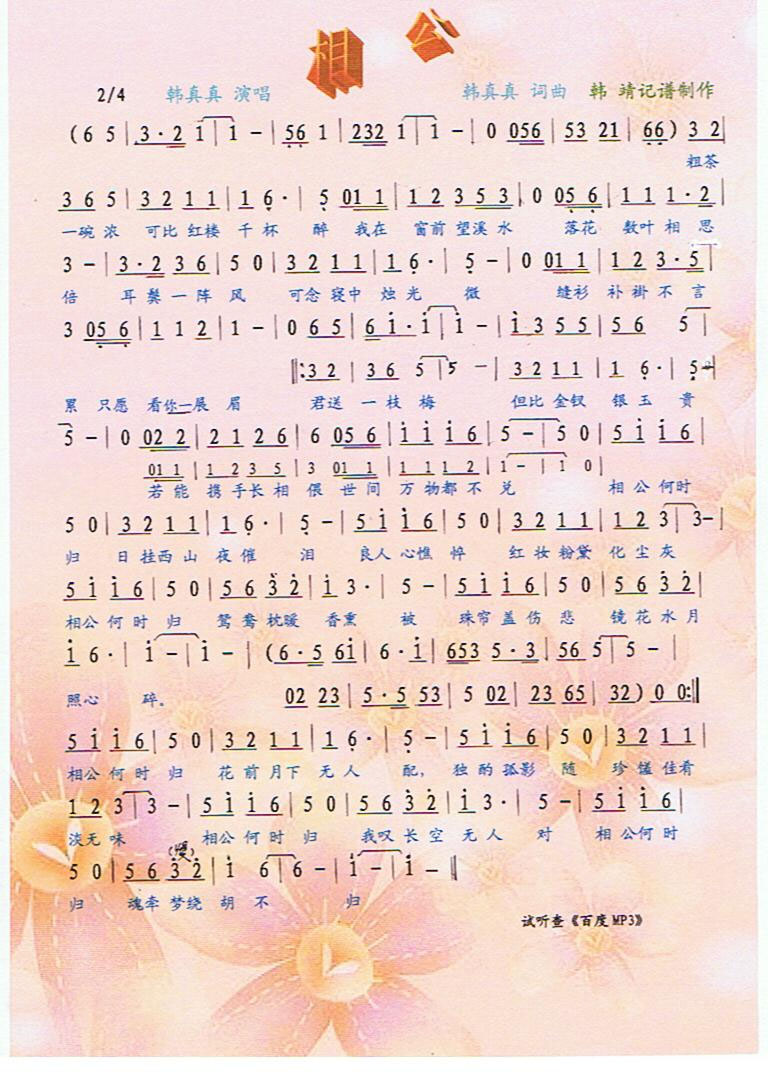 相公
2/4 韩真真 演唱 韩真真 词曲 韩 靖记谱制作
(6 5 | 3·2 1 | 1 - | 56 1 | 232 1 | 1 - | 0 056 | 53 21 | 66) 3 2 |
粗茶
3 6 5 | 3 2 1 1 | 1 6· | 5 01 1 | 1 2 3 5 3 | 0 05 6 | 1 1 1·2 |
一碗 浓 可比 红楼 千 杯 醉 我在 窗前 望溪 水 落花 数叶 相 思
3 - | 3·2 3 6 | 5 0 | 3 2 1 1 | 1 6· | 5 - | 0 01 1 | 1 2 3·5 |
倍 耳鬓 一 阵 风 可念 寝中 烛 光 微 缝衫 补 褂 不 言
3 05 6 | 1 1 2 | 1 - | 0 6 5 | 6 i·i | i - | i 3 5 5 | 5 6 5 |
‖: 3 2 | 3 6 5 | 5 - | 3 2 1 1 | 1 6· | 5 |
累 只愿 看你一展 眉 君送 一 枝 梅 但比 金钗 银 玉 贵
5 - | 0 02 2 | 2 1 2 6 | 6 05 6 | i i i 6 | 5 - | 5 0 | 5 i i 6 |
01 1 | 1 2 3 5 | 3 01 1 | 1 1 1 2 | 1 - | 1 0 |
若 能 携 手长 相 偎 世 间 万 物都 不 兑 相 公 何时
5 0 | 3 2 1 1 | 1 6· | 5 - | 5 i i 6 | 5 0 | 3 2 1 1 | 1 2 3 | 3 - |
归 日 挂西 山 夜 催 泪 良人 心憔 悴 红 妆 粉黛 化 尘 灰
5 i i 6 | 5 0 | 5 6 3 2 | i 3· | 5 - | 5 i i 6 | 5 0 | 5 6 3 2 |
相公 何 时 归 鸳 鸯 枕暖 香熏 被 珠帘 盖 伤 悲 镜 花 水 月
i 6· | i - | i - | (6·5 6i | 6·i | 653 5·3 | 56 5 | 5 - |
照心 碎。
02 23 | 5·5 53 | 5 02 | 23 65 | 32) 0 0 :‖
5 i i 6 | 5 0 | 3 2 1 1 | 1 6· | 5 - | 5 i i 6 | 5 0 | 3 2 1 1 |
相公 何 时 归 花 前 月下 无 人 配, 独 酌 孤影 随 珍 馐 佳肴
1 2 3 | 3 - | 5 i i 6 | 5 0 | 5 6 3 2 | i 3· | 5 - | 5 i i 6 |
淡无 味 相公 何 时 归 我叹 长 空 无 人 对 相 公何 时
(慢)
5 0 | 5 6 3 2 | i 6 | 6 - | i - | i - ‖
归 魂牵 梦绕 胡 不 归
试听查《百度MP3》